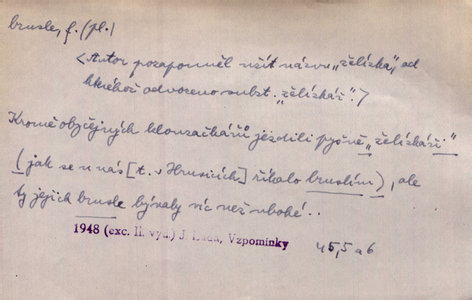 brusle, f. (pl.)
<Autor pozapomněl užít názvu „želízka", od
kteréhož odvozeno subst. „želízkář".>
Kromě obyčejných klouzačkářů jezdili pyšně „želízkáři"
(jak se u nás [t. v Hrusicích] říkalo bruslím), ale
ty jejich brusle bývaly víc než ubohé..
1948 (exc. II. vyd.) J. Lada, Vzpomínky
45,5 a 6